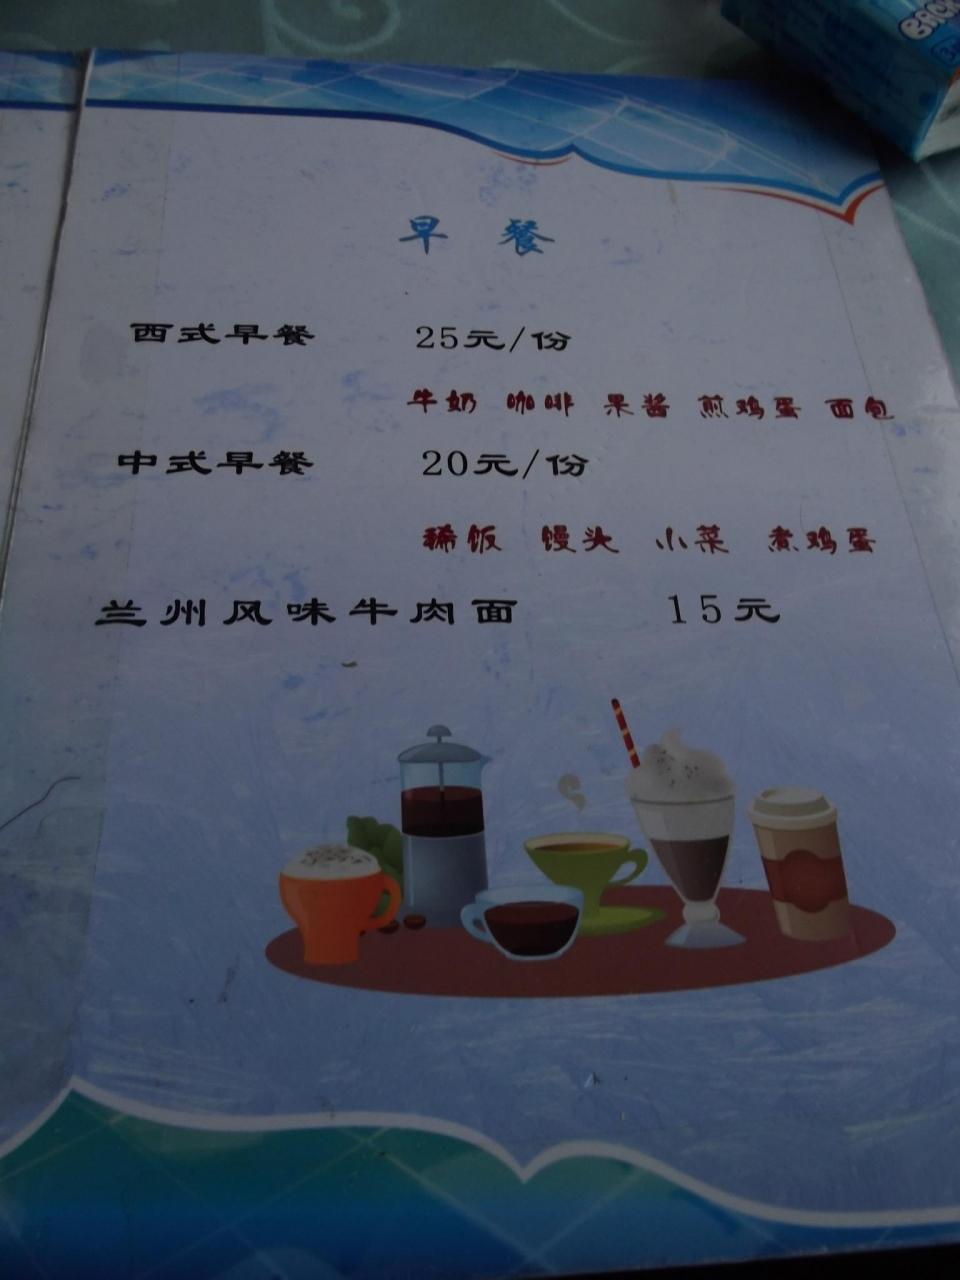 早餐
西式早餐 25元/份
牛奶 咖啡 果酱 煎鸡蛋 面包
中式早餐 20元/份
稀饭 馒头 小菜 煮鸡蛋
兰州风味牛肉面 15元